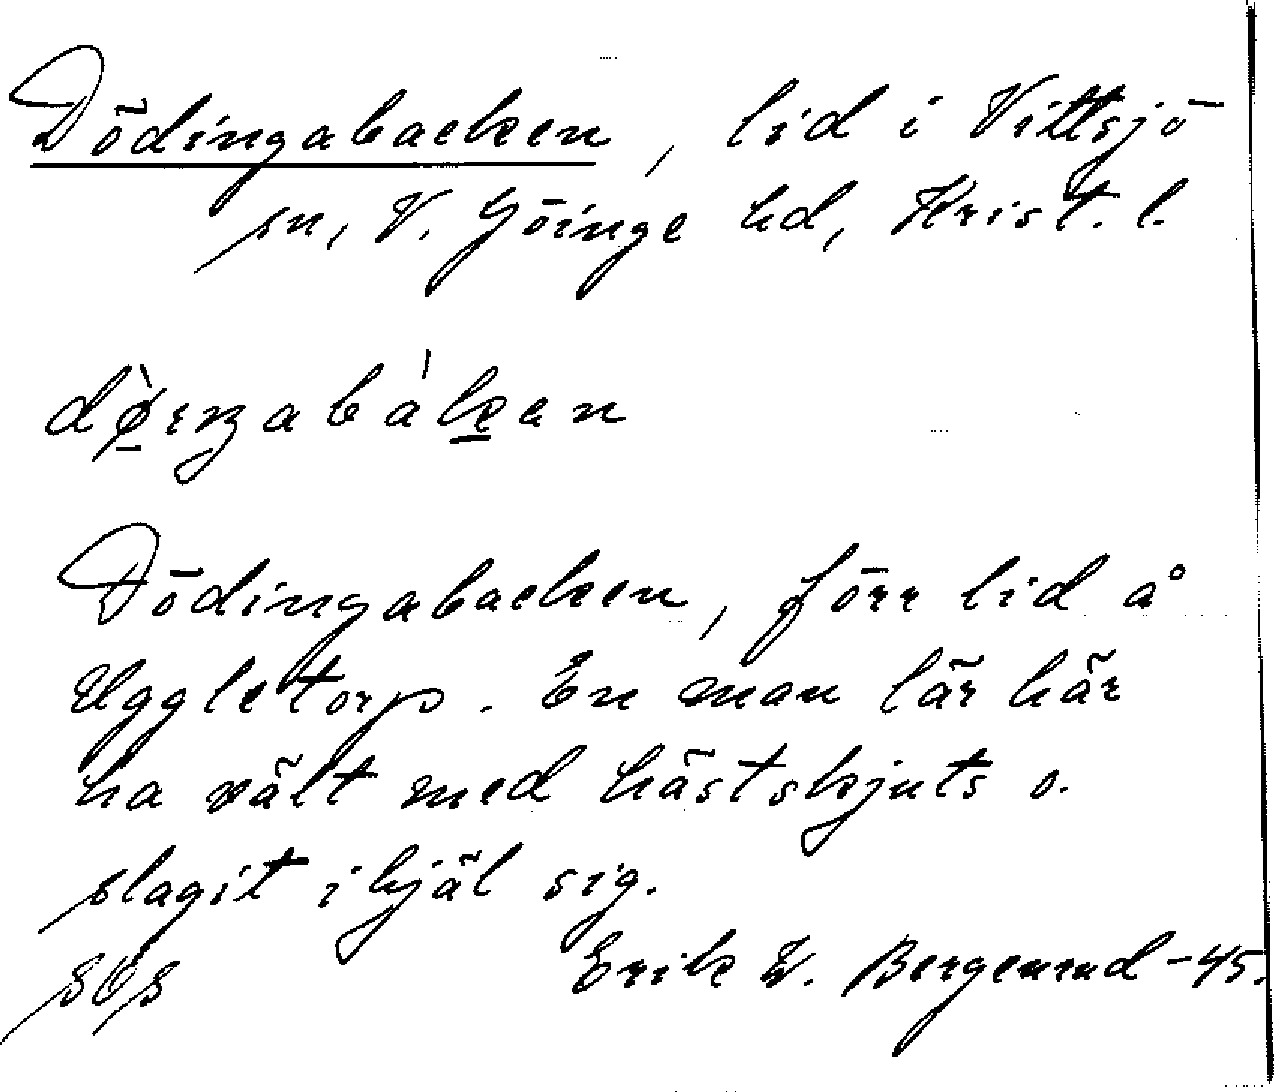 Dödingabacken, lid i Vittsjö
sn, V. Göinge hd, Krist. l.
Dödingabacken, förr lid å
Uggletorp. En man lär här
ha vält med hästskjuts o.
slagit ihjäl sig.
Erik W. Bergenrud -45.